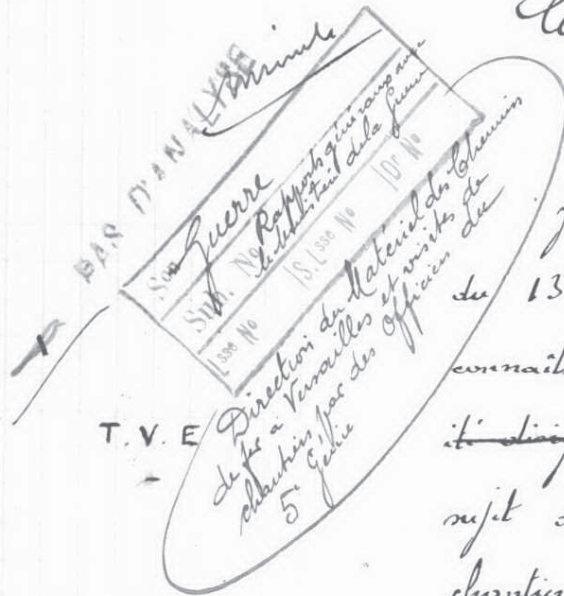 PAS D'ANALYSE
Son Guerre
Sim. No Rapports généraux avec
le Ministère de la Guerre
Lsse No S. Lsse No Dr No
Direction du Matériel des Chemins
de fer à Versailles et visites de
chantiers par des Officiers du
5e Génie
T. V. E
du 13
connaît
sujet
chantier